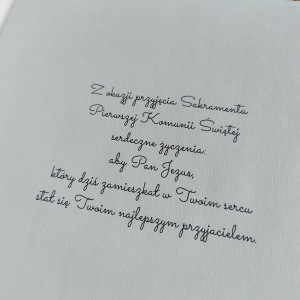 Z okazji przyjęcia Sakramentu
Pierwszej Komunii Świętej
serdeczne życzenia:
aby Pan Jezus,
który dziś zamieszkał w Twoim sercu
stał się Twoim najlepszym przyjacielem.